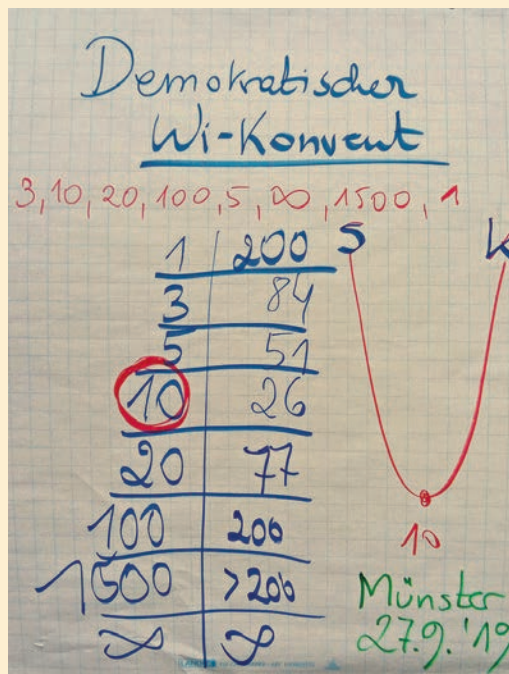 Demokratischer
Wi-Konvent
3, 10, 20, 100, 5, ∞, 1500, 1
S K
1 200
3 84
5 51
10 26
20 77
100 200
1500 >200
∞ ∞
10
Münster
27.9.'19